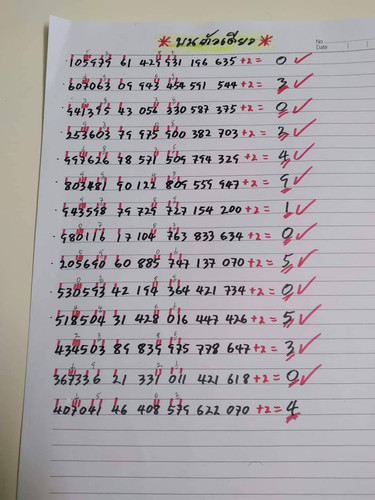 No.
Date
*บนตัวเดียว*
105979 61 429 931 196 635 +2 = 0 ✓
607063 09 943 454 591 544 +2 = 3 ✓
941395 43 056 330 587 375 +2 = 0 ✓
253603 79 975 900 382 703 +2 = 3 ✓
997626 98 571 509 794 329 +2 = 4 ✓
803481 90 122 809 559 947 +2 = 9 ✓
943598 79 729 727 154 200 +2 = 1 ✓
980116 17 104 763 833 634 +2 = 0 ✓
205690 60 885 747 137 070 +2 = 5 ✓
530593 42 194 364 421 734 +2 = 0 ✓
518504 31 428 016 447 426 +2 = 5 ✓
434503 89 839 975 778 647 +2 = 3 ✓
367336 21 331 011 421 618 +2 = 0 ✓
407041 46 408 579 622 070 +2 = 4